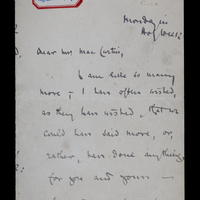 Monday in
Dear Mrs MacCurtin,
I am like so many
more – I have often wished,
as they have wished, that we
could have said more, or,
rather, have done anything,
for you and yours –